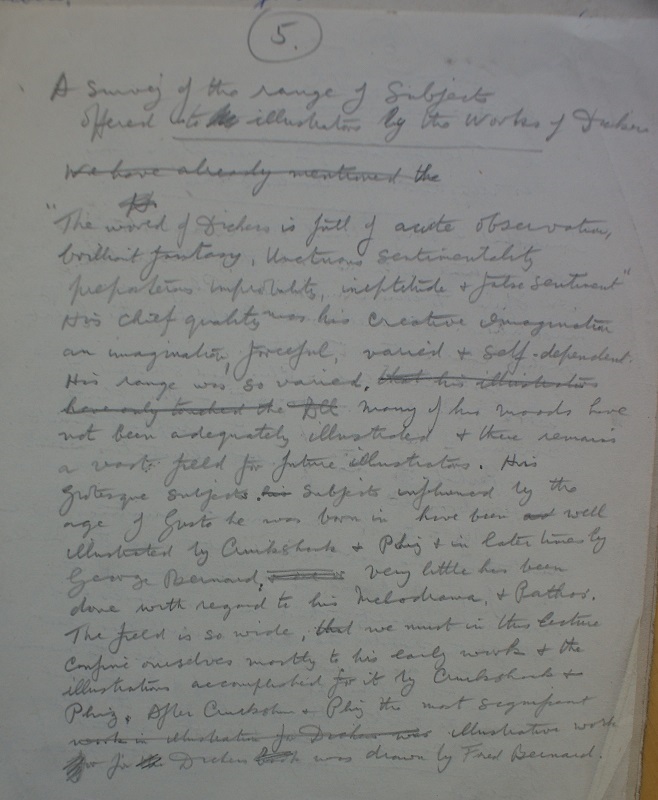 5.
A Survey of the range of Subjects
offered to illustrators by the Works of Dickens
We have already mentioned the
"The world of Dickens is full of acute observation,
brilliant fantasy, Unctuous Sentimentality
preposterous improbality, ineptitude & false sentiment"
His chief quality was his creative imagination
an imagination, forceful, varied & self-dependent.
His range was so varied, that his illustrators
have only touched the All many of his moods have
not been adequately illustrated & there remains
a vast field for future illustrators. His
Grotesque subjects his subjects influenced by the
age of Gusto he was born in have been and well
illustrated by Cruikshank & Phiz & in later times by
George Bernard, very little has been
done with regard to his Melodrama, & Pathos.
The field is so wide, that we must in this lecture
confine ourselves mostly to his early work & the
illustrations accomplished for it by Cruikshank &
Phiz. After Cruikshank & Phiz the most significant
work in illustration for Dickens was illustrative work
for the Dickens book was drawn by Fred Bernard.